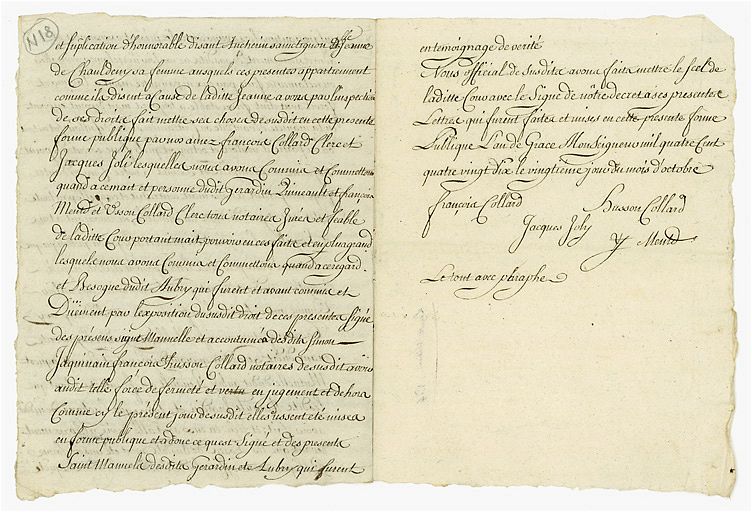 N 18
et suplication d'honnorable disant Aucheim sannetignon et Jeanne
de Chaulden sa femme ausquels ces presentes appartiennent
comme ils disent a Cause de laditte Jeanne avons par l'inspection
de ses droits fait mettre ses choses desusdit en cette presente
forme publique par nos amez françois Collard Clerc et
Jacques Joli lesquelles nous avons Commis et Commettons
quand a ce mait et personne dudit Gerardin Quineault et françois
Menu et Usson Collard Clerc tous notaires Jurez et feable
de laditte Cour portant mait pouvoir en ces faits et en plus grand
lesquels nous avons Commis et Commettons quand a ce regard
et Besogne dudit Aubry qui furent et avant commis et
Duëment par l'exposition du susdit droit de ces presentes signé
des presens signe Manuelle et accoutumés desdits Simon
Jaquinain françois Husson Collard notaires desusdit avons
audit telle force de fermeté et vertu en jugement et dehors
Comme sy le present jour desusdit elles eussent été mises
en forme publique et a donc ce quest Signé et des presents
Saint Manuels desdits Gerardin et Aubry qui furent
en temoignage de verité
Nous official desusdits avons faits mettre le scel de
laditte Cour avec le Signe de nôtre decret a ses presentes
Lettres qui furent faites et mises en cette presente forme
Publique L'an de Grace Monseigneur mil quatre Cent
quatre vingt dix le vingtieme jour du mois d'octobre
François Collard Husson Collard
Jacques Joly Y Menu
Le tout avec paraphe